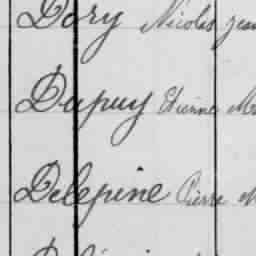 Dory Nicolas Jean
Dupuy Etienne
Delepine Pierre